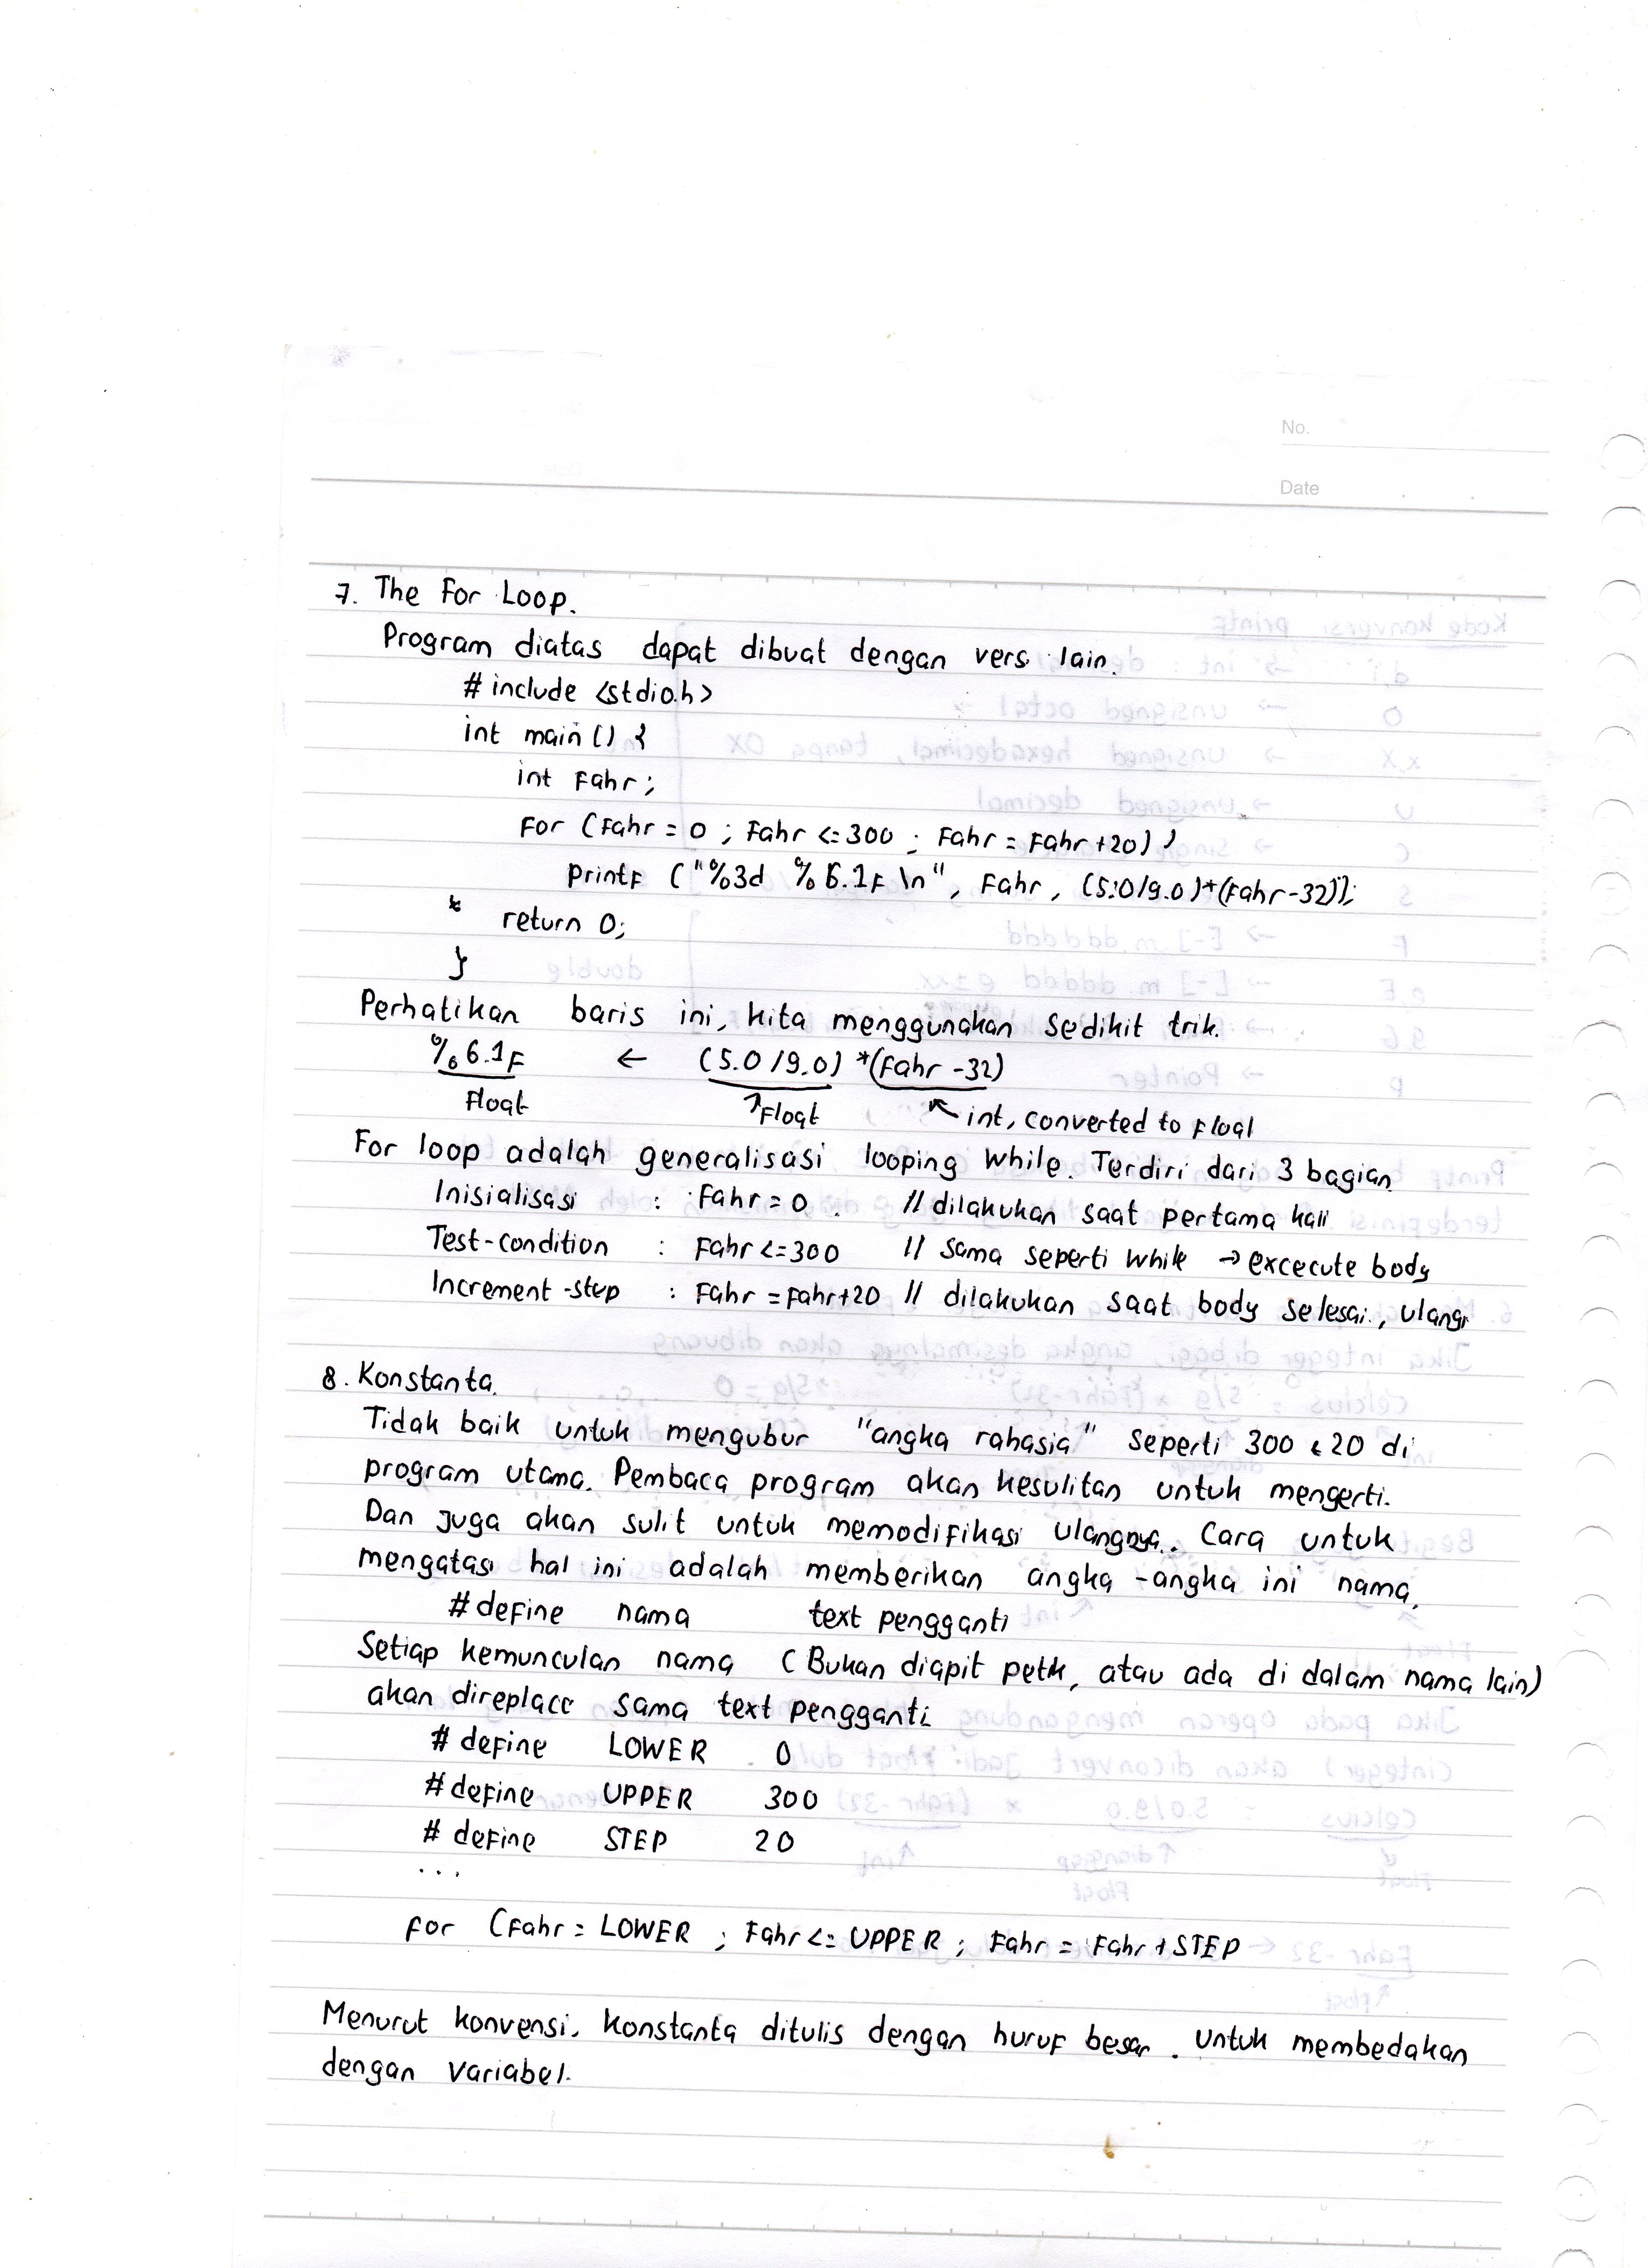 No.
Date
7. The For Loop.
Program diatas dapat dibuat dengan vers. lain.
# include <stdio.h>
int main () {
int Fahr;
For (Fahr = 0 ; Fahr <= 300 ; Fahr = Fahr +20) )
printf ("%3d %6.1f \n", Fahr, (5.0/9.0)*(Fahr-32));
* return 0;
}
Perhatikan baris ini, kita menggunakan sedikit trik.
%6.1f ← (5.0/9.0) *(Fahr -32)
Float ↑Float ↖ int, converted to Float
For loop adalah generalisasi looping while. Terdiri dari 3 bagian.
Inisialisasi : Fahr = 0 . // dilakukan saat pertama kali
Test-condition : Fahr <= 300 // sama seperti while → excecute body
Increment-step : Fahr = Fahr+20 // dilakukan saat body selesai, ulangi
8. Konstanta.
Tidak baik untuk mengubur "angka rahasia" seperti 300 & 20 di
program utama. Pembaca program akan kesulitan untuk mengerti.
Dan juga akan sulit untuk memodifikasi ulangnya. Cara untuk
mengatasi hal ini adalah memberikan angka-angka ini nama.
#define nama text pengganti
Setiap kemunculan nama (Bukan diapit petik, atau ada di dalam nama lain)
akan direplace sama text pengganti
# define LOWER 0
# define UPPER 300
# define STEP 20
...
for (Fahr = LOWER ; Fahr <= UPPER ; Fahr = Fahr + STEP
Menurut konvensi, konstanta ditulis dengan huruf besar. untuk membedakan
dengan variabel.